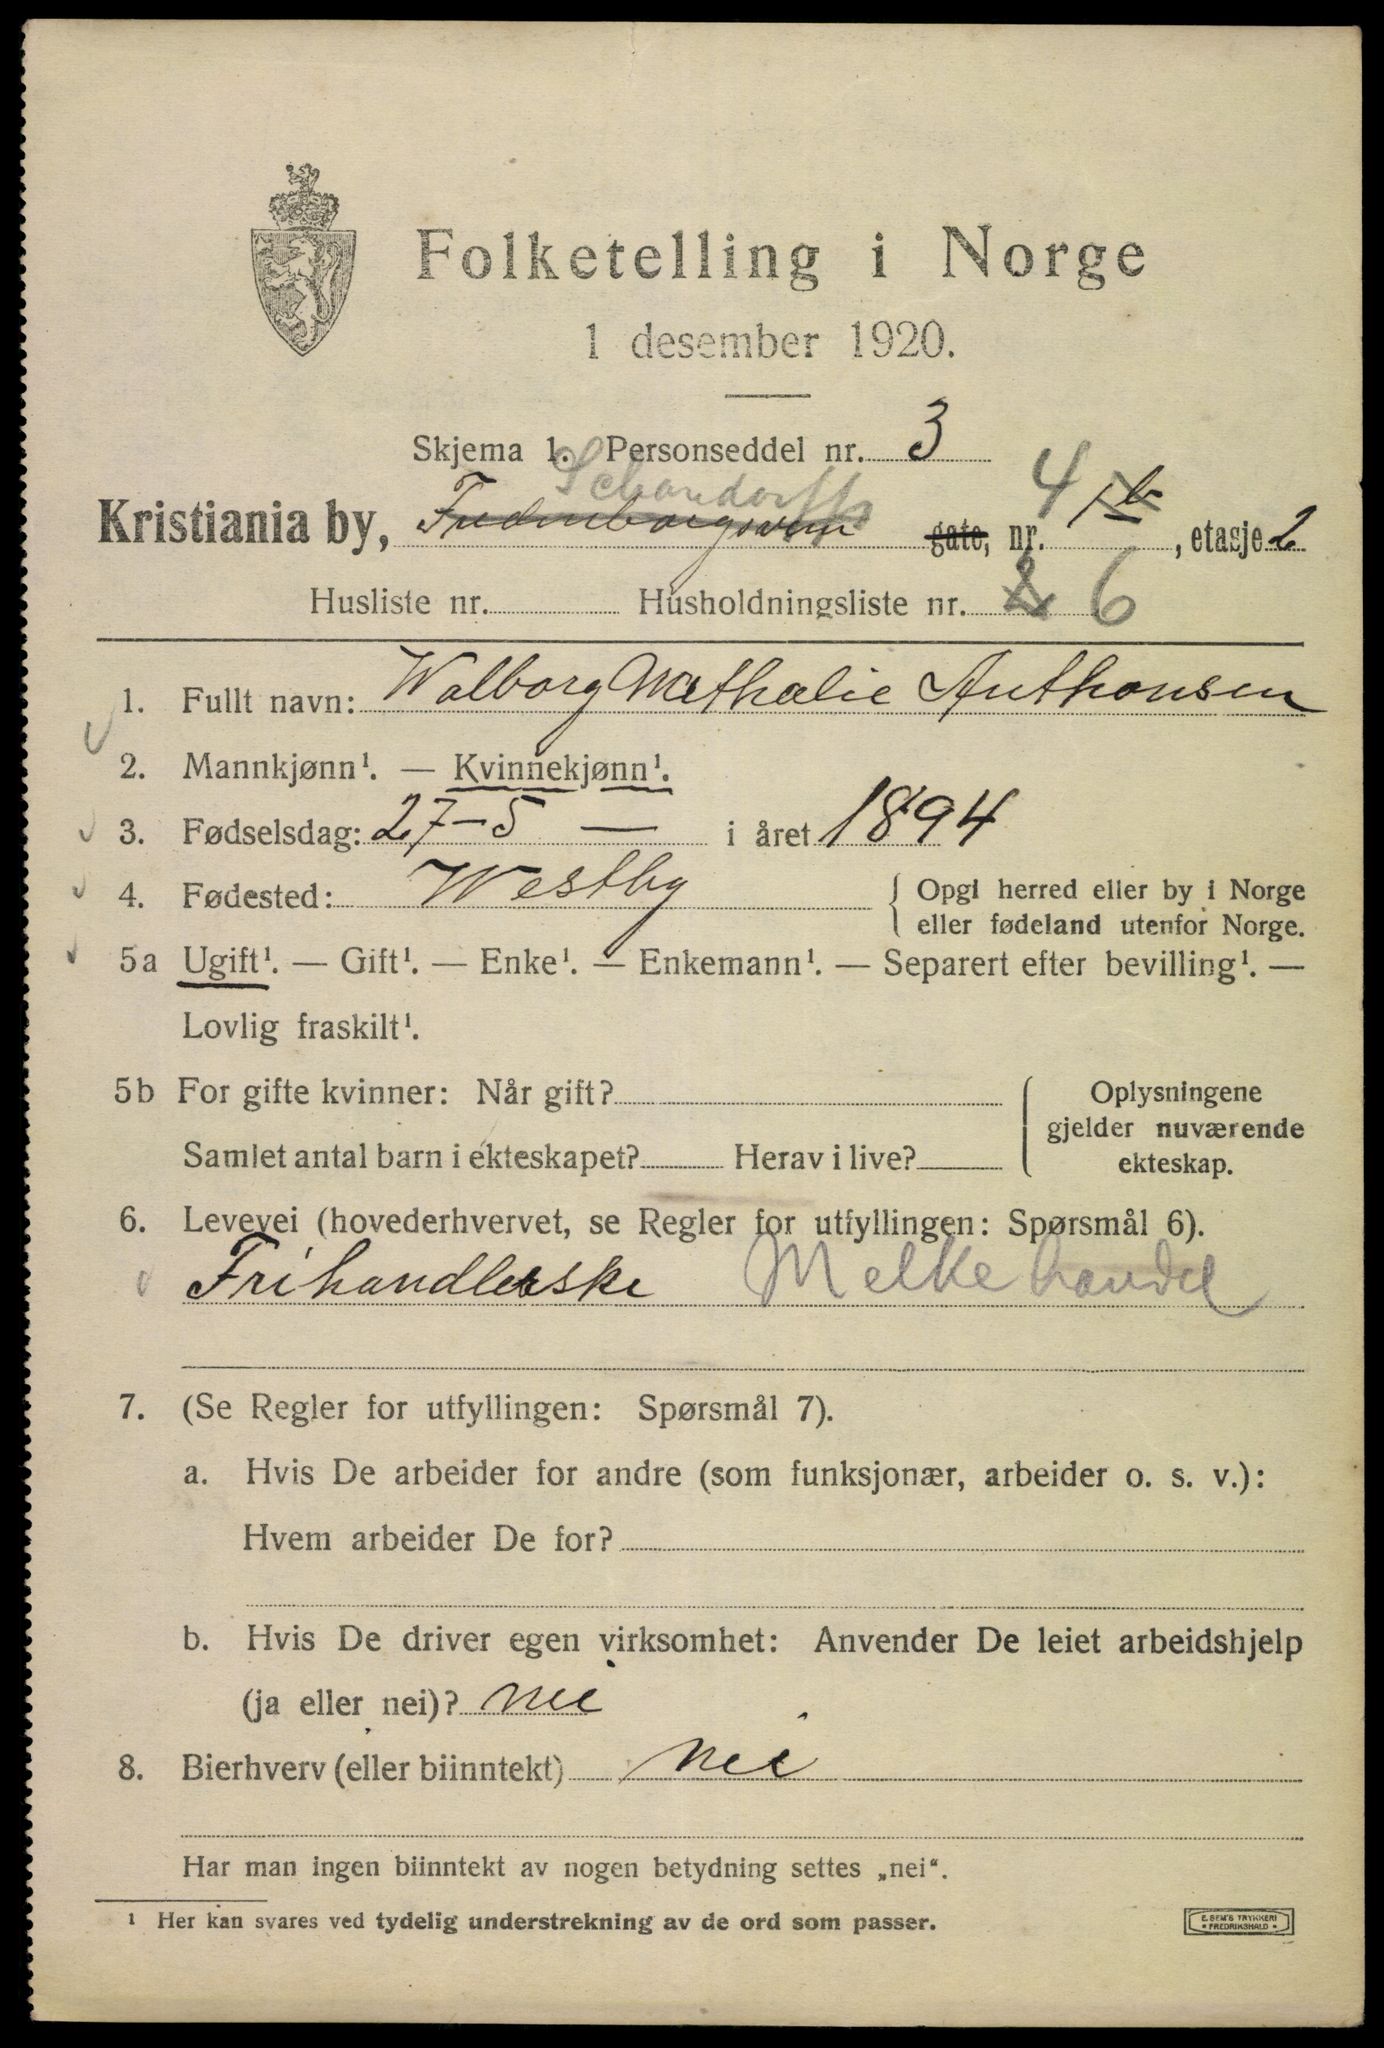 Folketelling i Norge
1 desember 1920.
Skjema 1. Personseddel nr. 3
Schandorffs 4
Kristiania by, Fredensborgsveien gate, nr. 1b, etasje 2
Husliste nr. Husholdningsliste nr. 2 6
1. Fullt navn: Walborg Mathalie Anthonsen
2. Mannkjønn¹. — Kvinnekjønn¹.
3. Fødselsdag: 27-5 — i året 1894
4. Fødested: Westby { Opgi herred eller by i Norge
eller fødeland utenfor Norge.
5a Ugift¹. — Gift¹. — Enke¹. — Enkemann¹. — Separert efter bevilling¹. —
Lovlig fraskilt¹.
5b For gifte kvinner: Når gift? { Oplysningene
gjelder nuværende
Samlet antal barn i ekteskapet? Herav i live? ekteskap.
6. Levevei (hovederhvervet, se Regler for utfyllingen: Spørsmål 6).
Frihandlerske Melkehandel
7. (Se Regler for utfyllingen: Spørsmål 7).
a. Hvis De arbeider for andre (som funksjonær, arbeider o. s. v.):
Hvem arbeider De for?
b. Hvis De driver egen virksomhet: Anvender De leiet arbeidshjelp
(ja eller nei)? nei
8. Bierhverv (eller biinntekt) nei
Har man ingen biinntekt av nogen betydning settes „nei“.
¹ Her kan svares ved tydelig understrekning av de ord som passer.
E. SEM'S TRYKKERI
• FREDRIKSHALD •